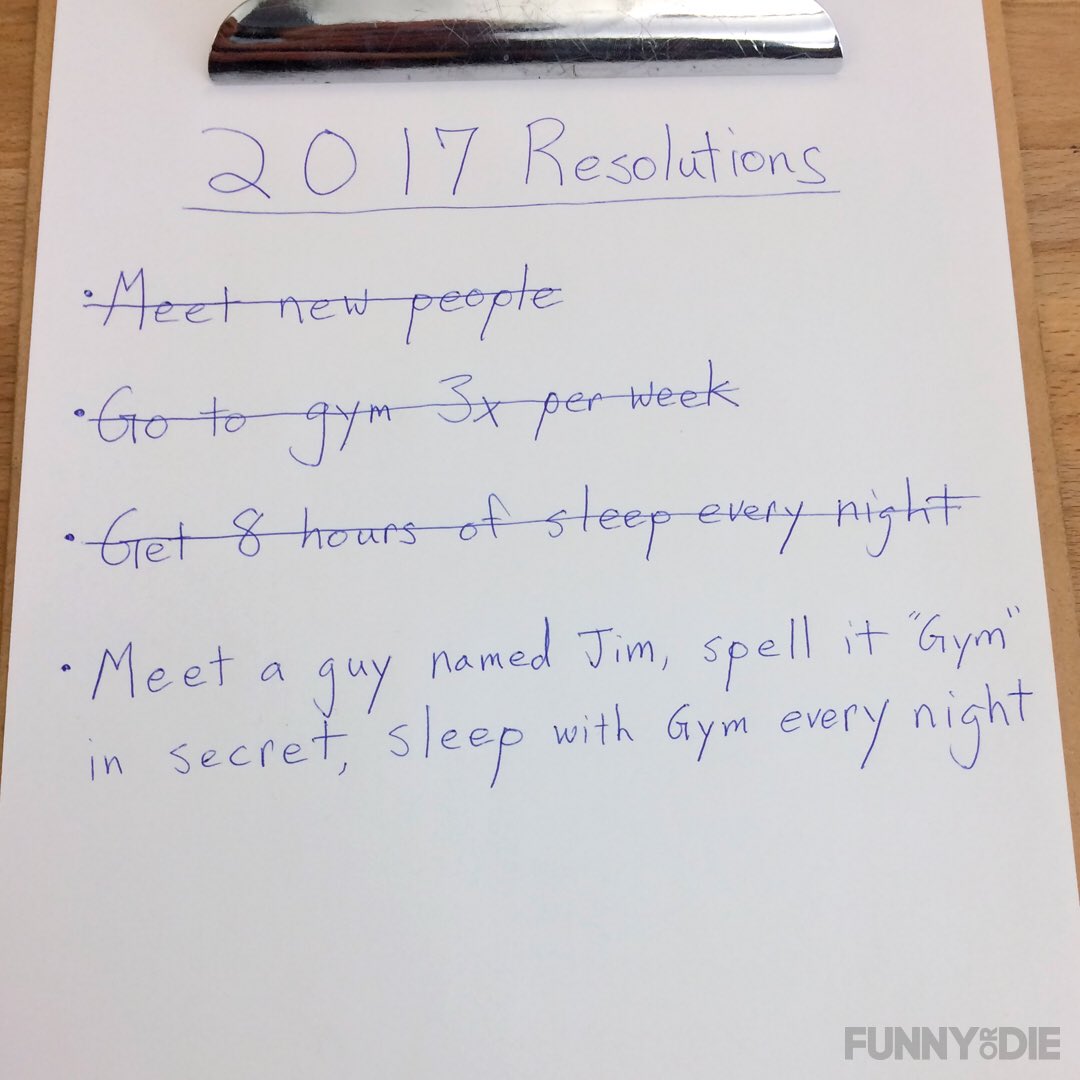 2017 Resolutions
• Meet new people
• Go to gym 3x per week
• Get 8 hours of sleep every night
• Meet a guy named Jim, spell it "Gym"
in secret, sleep with Gym every night
FUNNY OR DIE